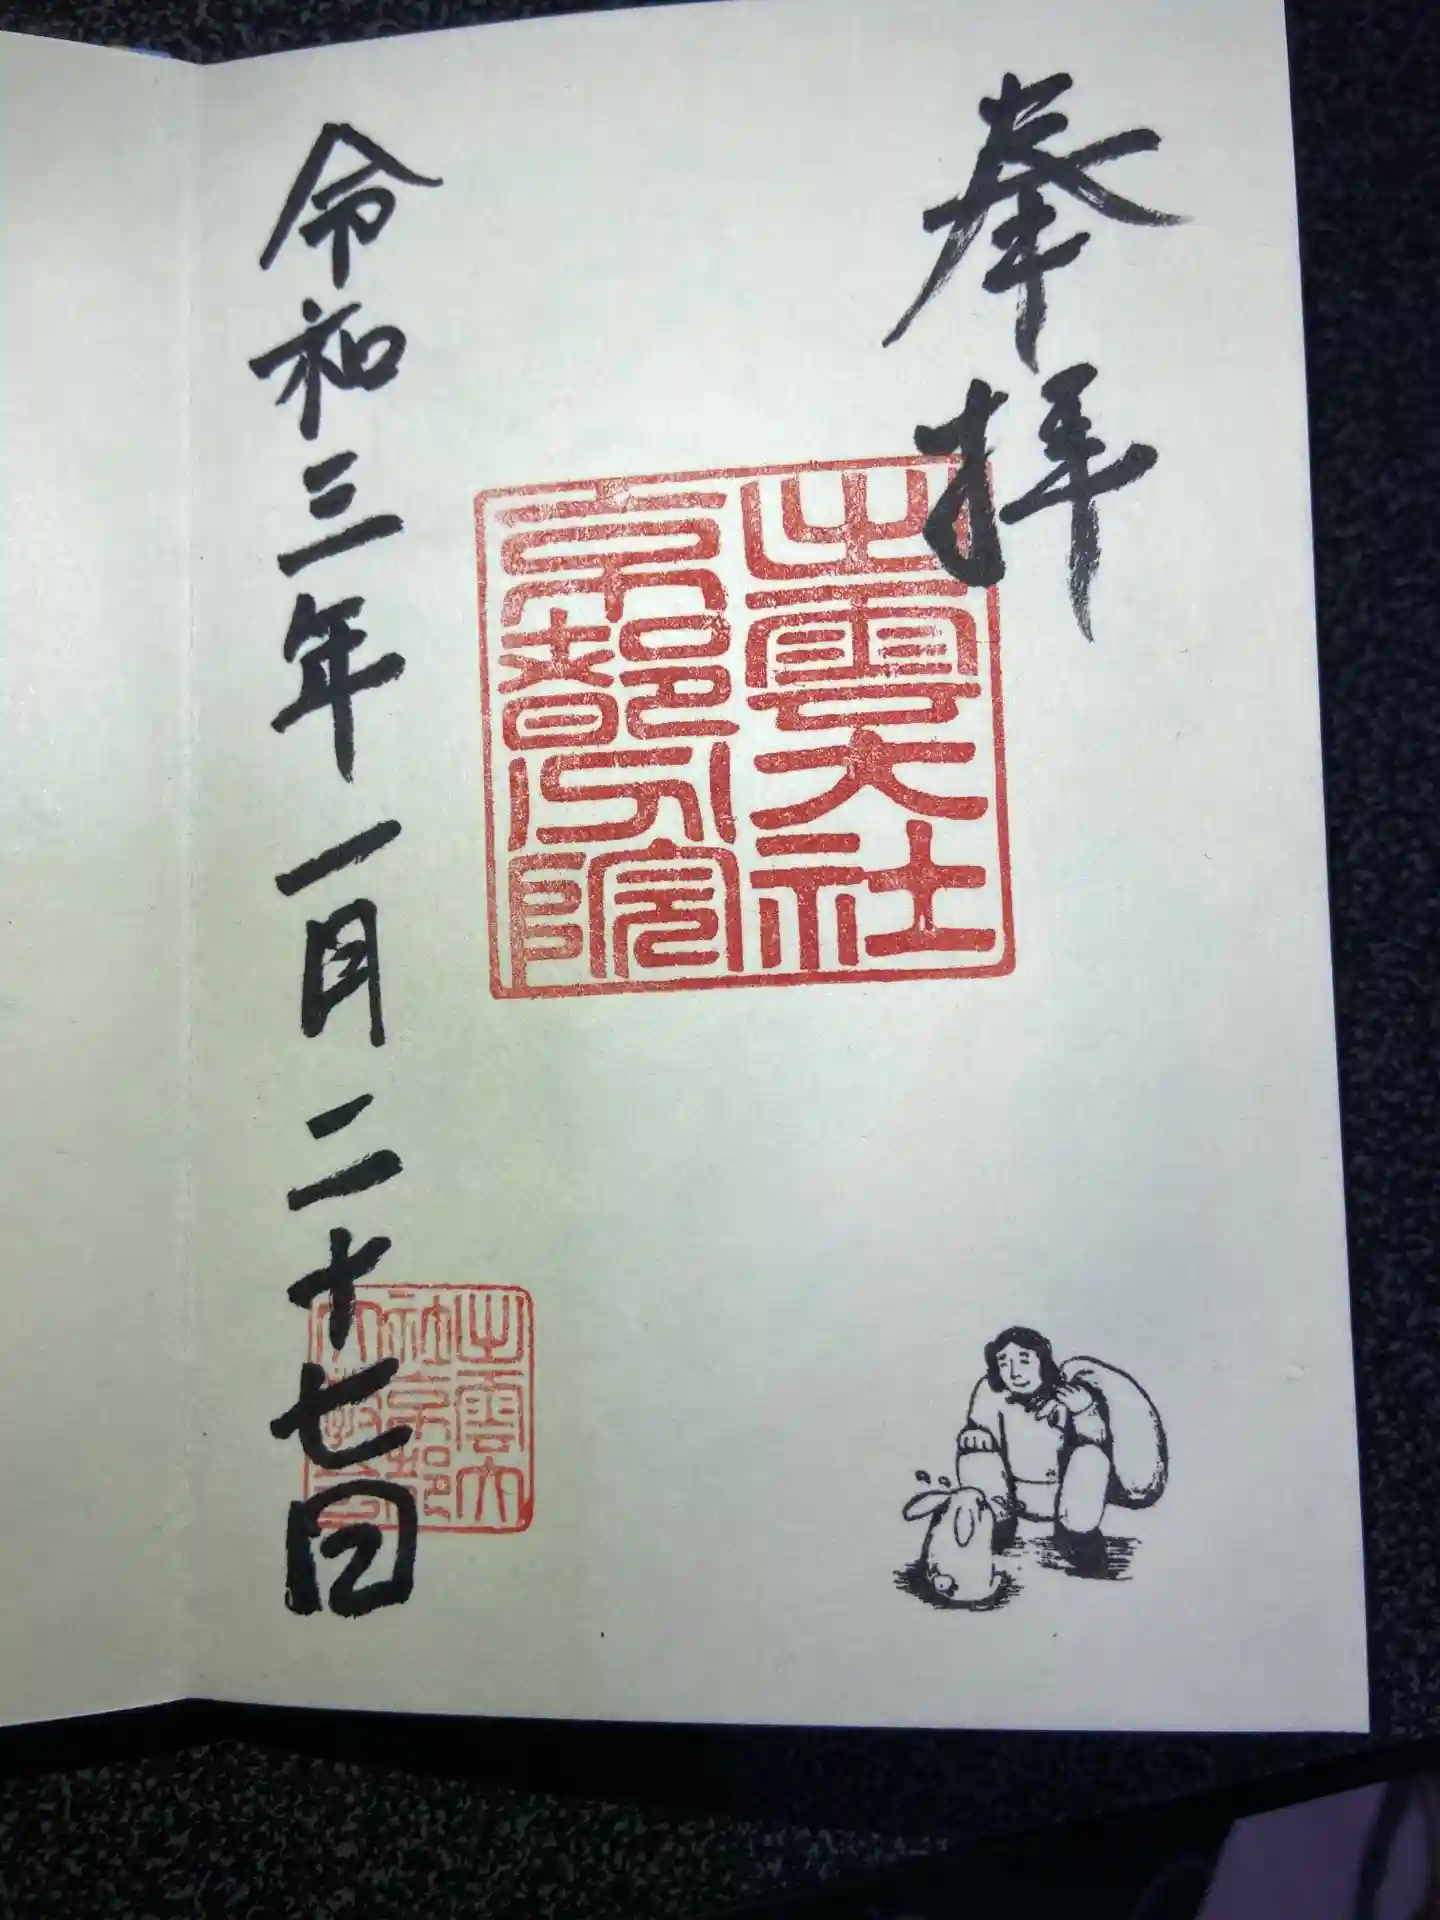 奉拝
出雲大社
京都分院
令和三年一月二十七日
出雲大
社京都